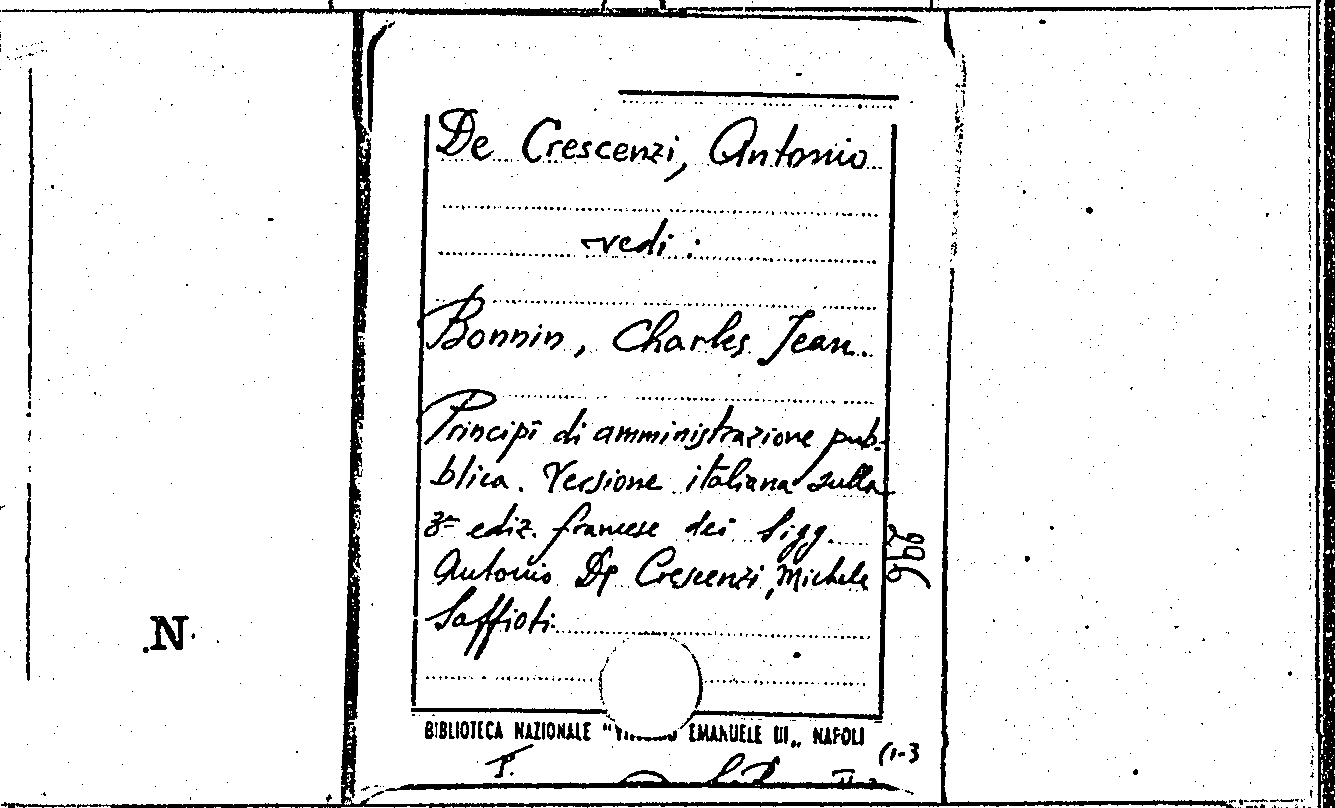 De Crescenzi, Antonio
vedi :
Bonnin, Charles Jean.
Principî di amministrazione pub-
blica. Versione italiana sulla
3ª ediz. francese dei Sigg.
Antonio De Crescenzi, Michele
Saffioti.
N
BIBLIOTECA NAZIONALE " EMANUELE III„ NAPOLI
(1-3